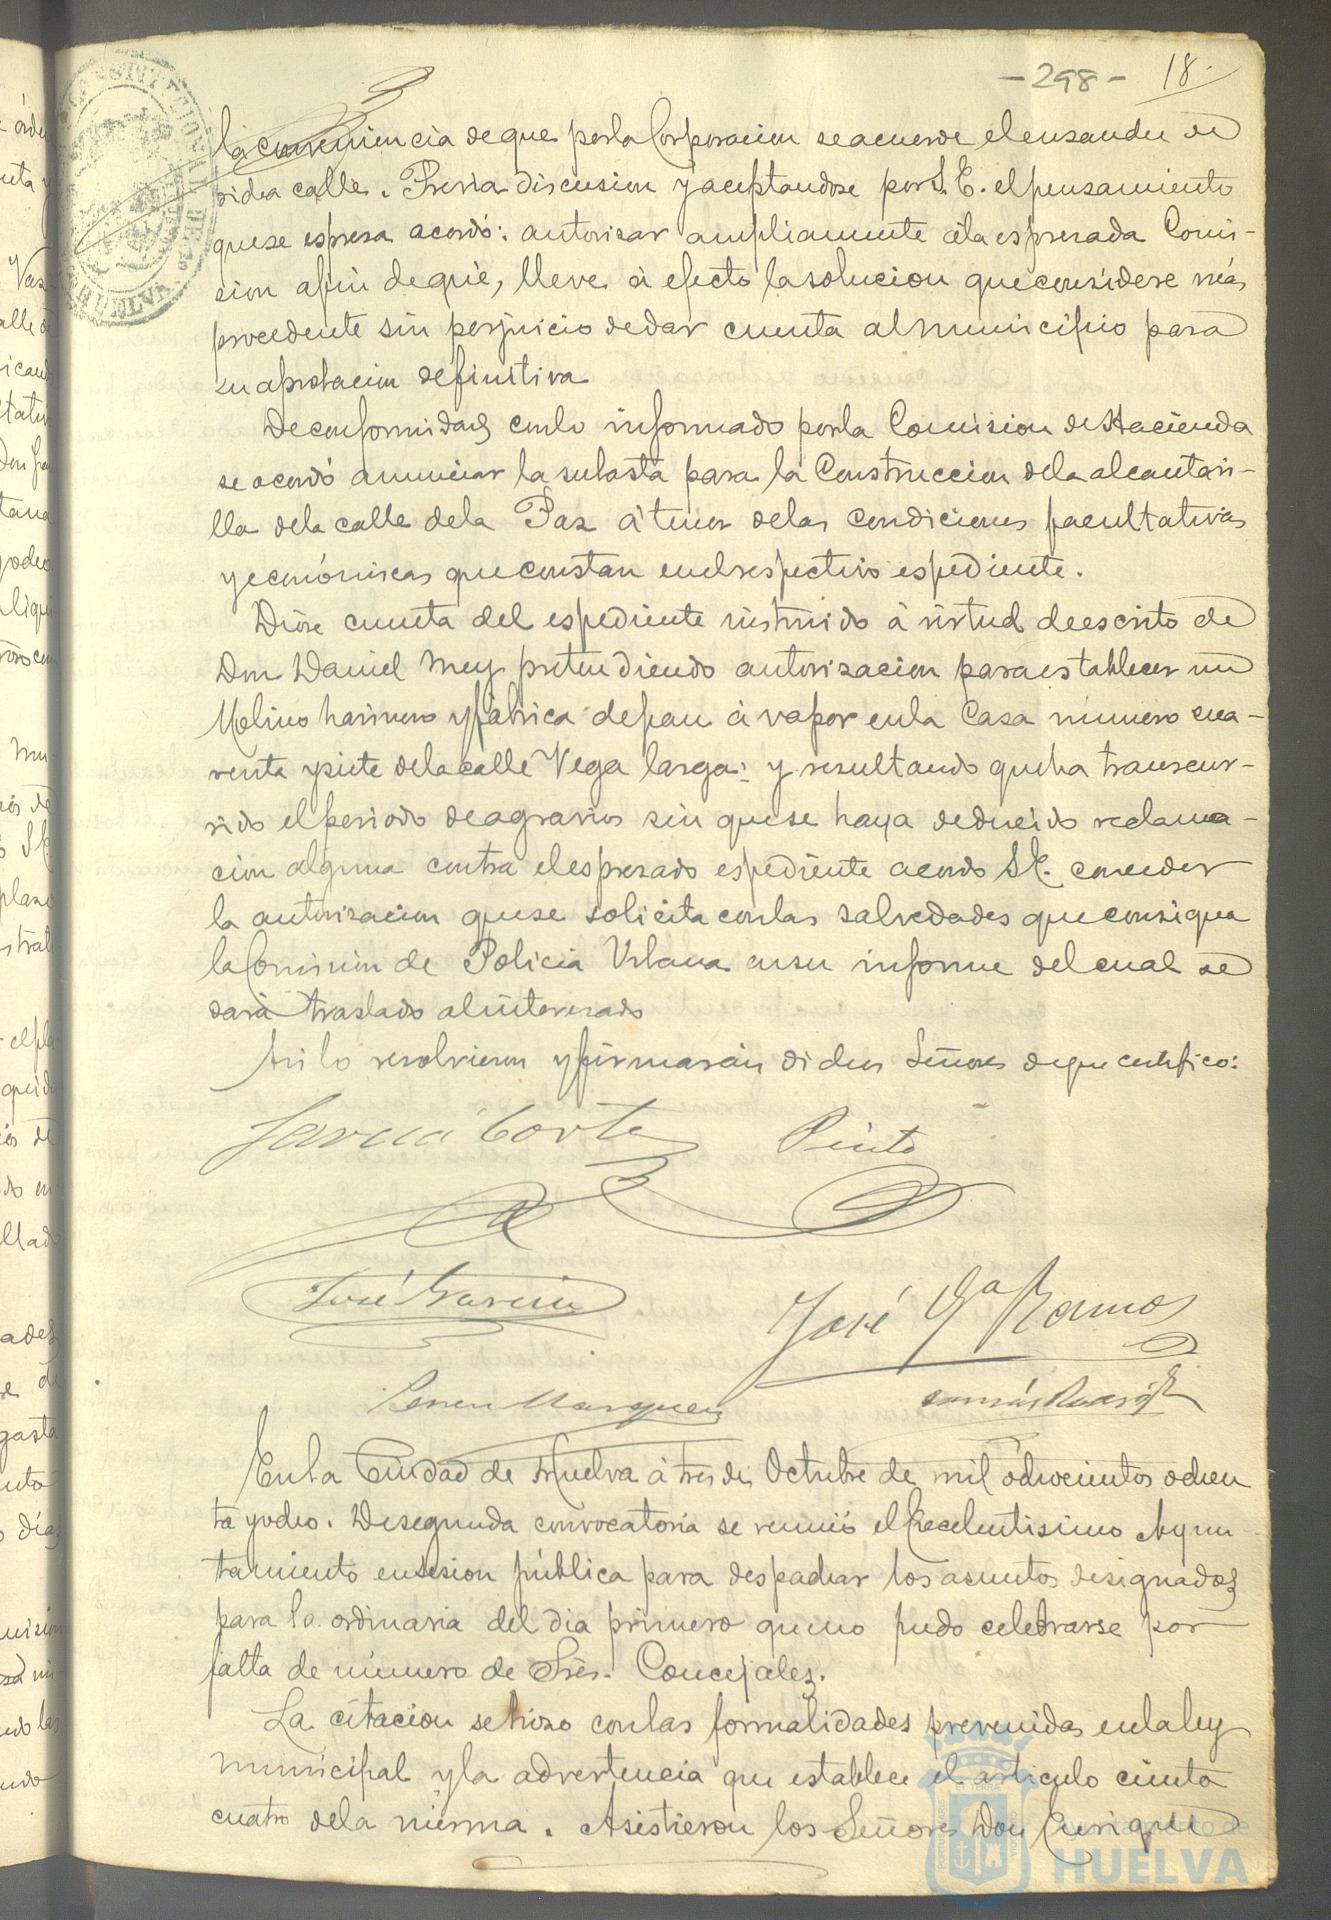 -298- 18.
la conveniencia de que por la Corporacion se acuerde el ensanche de
dicha calle. Previa discusion y aceptandose por S. E. el pensamiento
que se espresa acordó: autorizar ampliamente á la espresada Comi-
sion afin de que, lleve á efecto la solucion que considere más
procedente sin perjuicio de dar cuenta al municipio para
su aprobacion definitiva
De conformidad con lo informado por la Comision de Hacienda
se acordó anunciar la subasta para la Construccion de la alcantari-
lla de la calle de la Paz á tenor de las condiciones facultativas
y económicas que constan en el respectivo espediente.
Dióse cuenta del espediente instruido á virtud de escrito de
Don Daniel Mey pretendiendo autorizacion para establecer un
Molino harinero y fabrica de pan á vapor en la Casa número cua-
renta y siete de la calle Vega larga: y resultando que ha transcur-
rido el periodo de agravios sin que se haya deducido reclama-
cion alguna contra el espresado espediente acordo S. E. conceder
la autorizacion que se solicita con las salvedades que consigna
la Comision de Policia Urbana en su informe del cual se
dará traslado al interesado
Asi lo resolvieron y firmarán dichos Señores de que certifico:
Garcia Cortes Pinto
José Garcia José Ga Ramos
Marquez
En la Ciudad de Huelva á tres de Octubre de mil ochocientos ochen
ta y ocho. De segunda convocatoria se reunió el Excelentisimo Ayun-
tamiento en sesion pública para despachar los asuntos designados
para la ordinaria del dia primero que no pudo celebrarse por
falta de número de Sres. Concejales.
La citacion se hizo con las formalidades prevenidas en la ley
municipal y la advertencia que establece el articulo ciento
cuatro de la misma. Asistieron los Señores Don Enrique
Ayuntamiento de
HUELVA